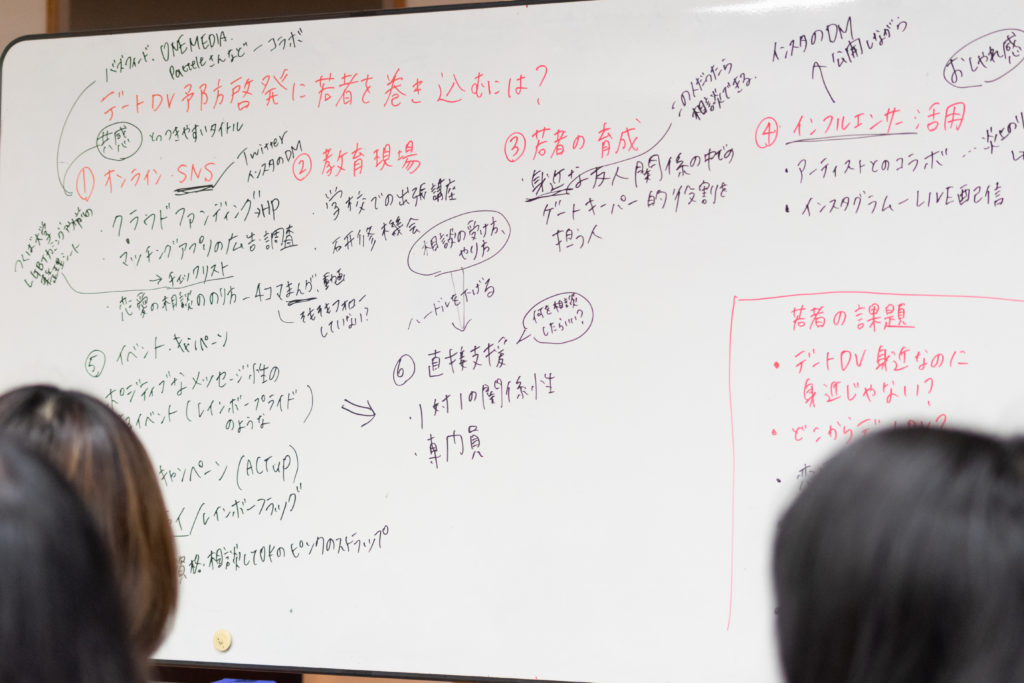 バズフィード、ONE MEDIA.
Patteleさんなど ー コラボ
デートDV予防啓発に若者を巻き込むには?
共感 とっつきやすいタイトル
① オンライン・SNS
Twitter
インスタのDM
・クラウドファンディング→HP
・マッチングアプリの広告・調査
→ チェックリスト
・恋愛の相談ののり方 ー 4コマまんが、動画
そもそもフォロー
していない?
つくば大学
LGBT
整理シート
② 教育現場
・学校での出張講座
・研修機会
相談の受け方、
やり方
ハードルを下げる
③ 若者の育成
・身近な友人関係の中での
ゲートキーパー的役割を
担う人
相談できる.
④ インフルエンサー活用
インスタのDM
公開しながら
おしゃれ感
・アーティストとのコラボ
・インスタグラムーLIVE配信
⑤ イベント・キャンペーン
ポジティブなメッセージ性の
イベント(レインボープライド
のような)
キャンペーン(ACT up)
/レインボーフラッグ
資格・相談してOKのピンクのストラップ
⑥ 直接支援
何を相談
したらいい?
・1対1の関係性
・専門員
若者の課題
・デートDV身近なのに
身近じゃない?
・どこから